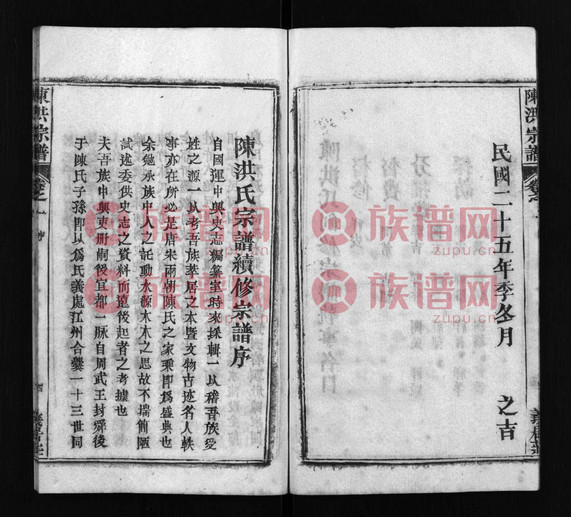 民國二十五年季冬月
之吉
陳洪宗譜
卷之一
陳洪氏宗譜續修宗譜序
自國運中興史志
時來採輯一以稽吾族受
姓之源一以考吾族萃居之本暨文物古迹名人軼
事亦在所必是唐宋兩朝陳氏之家乘即爲盛典也
余忝承族中人之記動水源木本之思故不揣簡陋
試述委供史志之資料而覔後起者之考據也
夫吾族中興東
後宜都一脉自周武王封舜後
于陳氏子孫即以爲氏義處江州合爨一十三世同
陳洪宗譜
卷之一
族谱网
zupu.cn
族谱网
zupu.cn
族谱网
zupu.cn
族谱网
zupu.cn